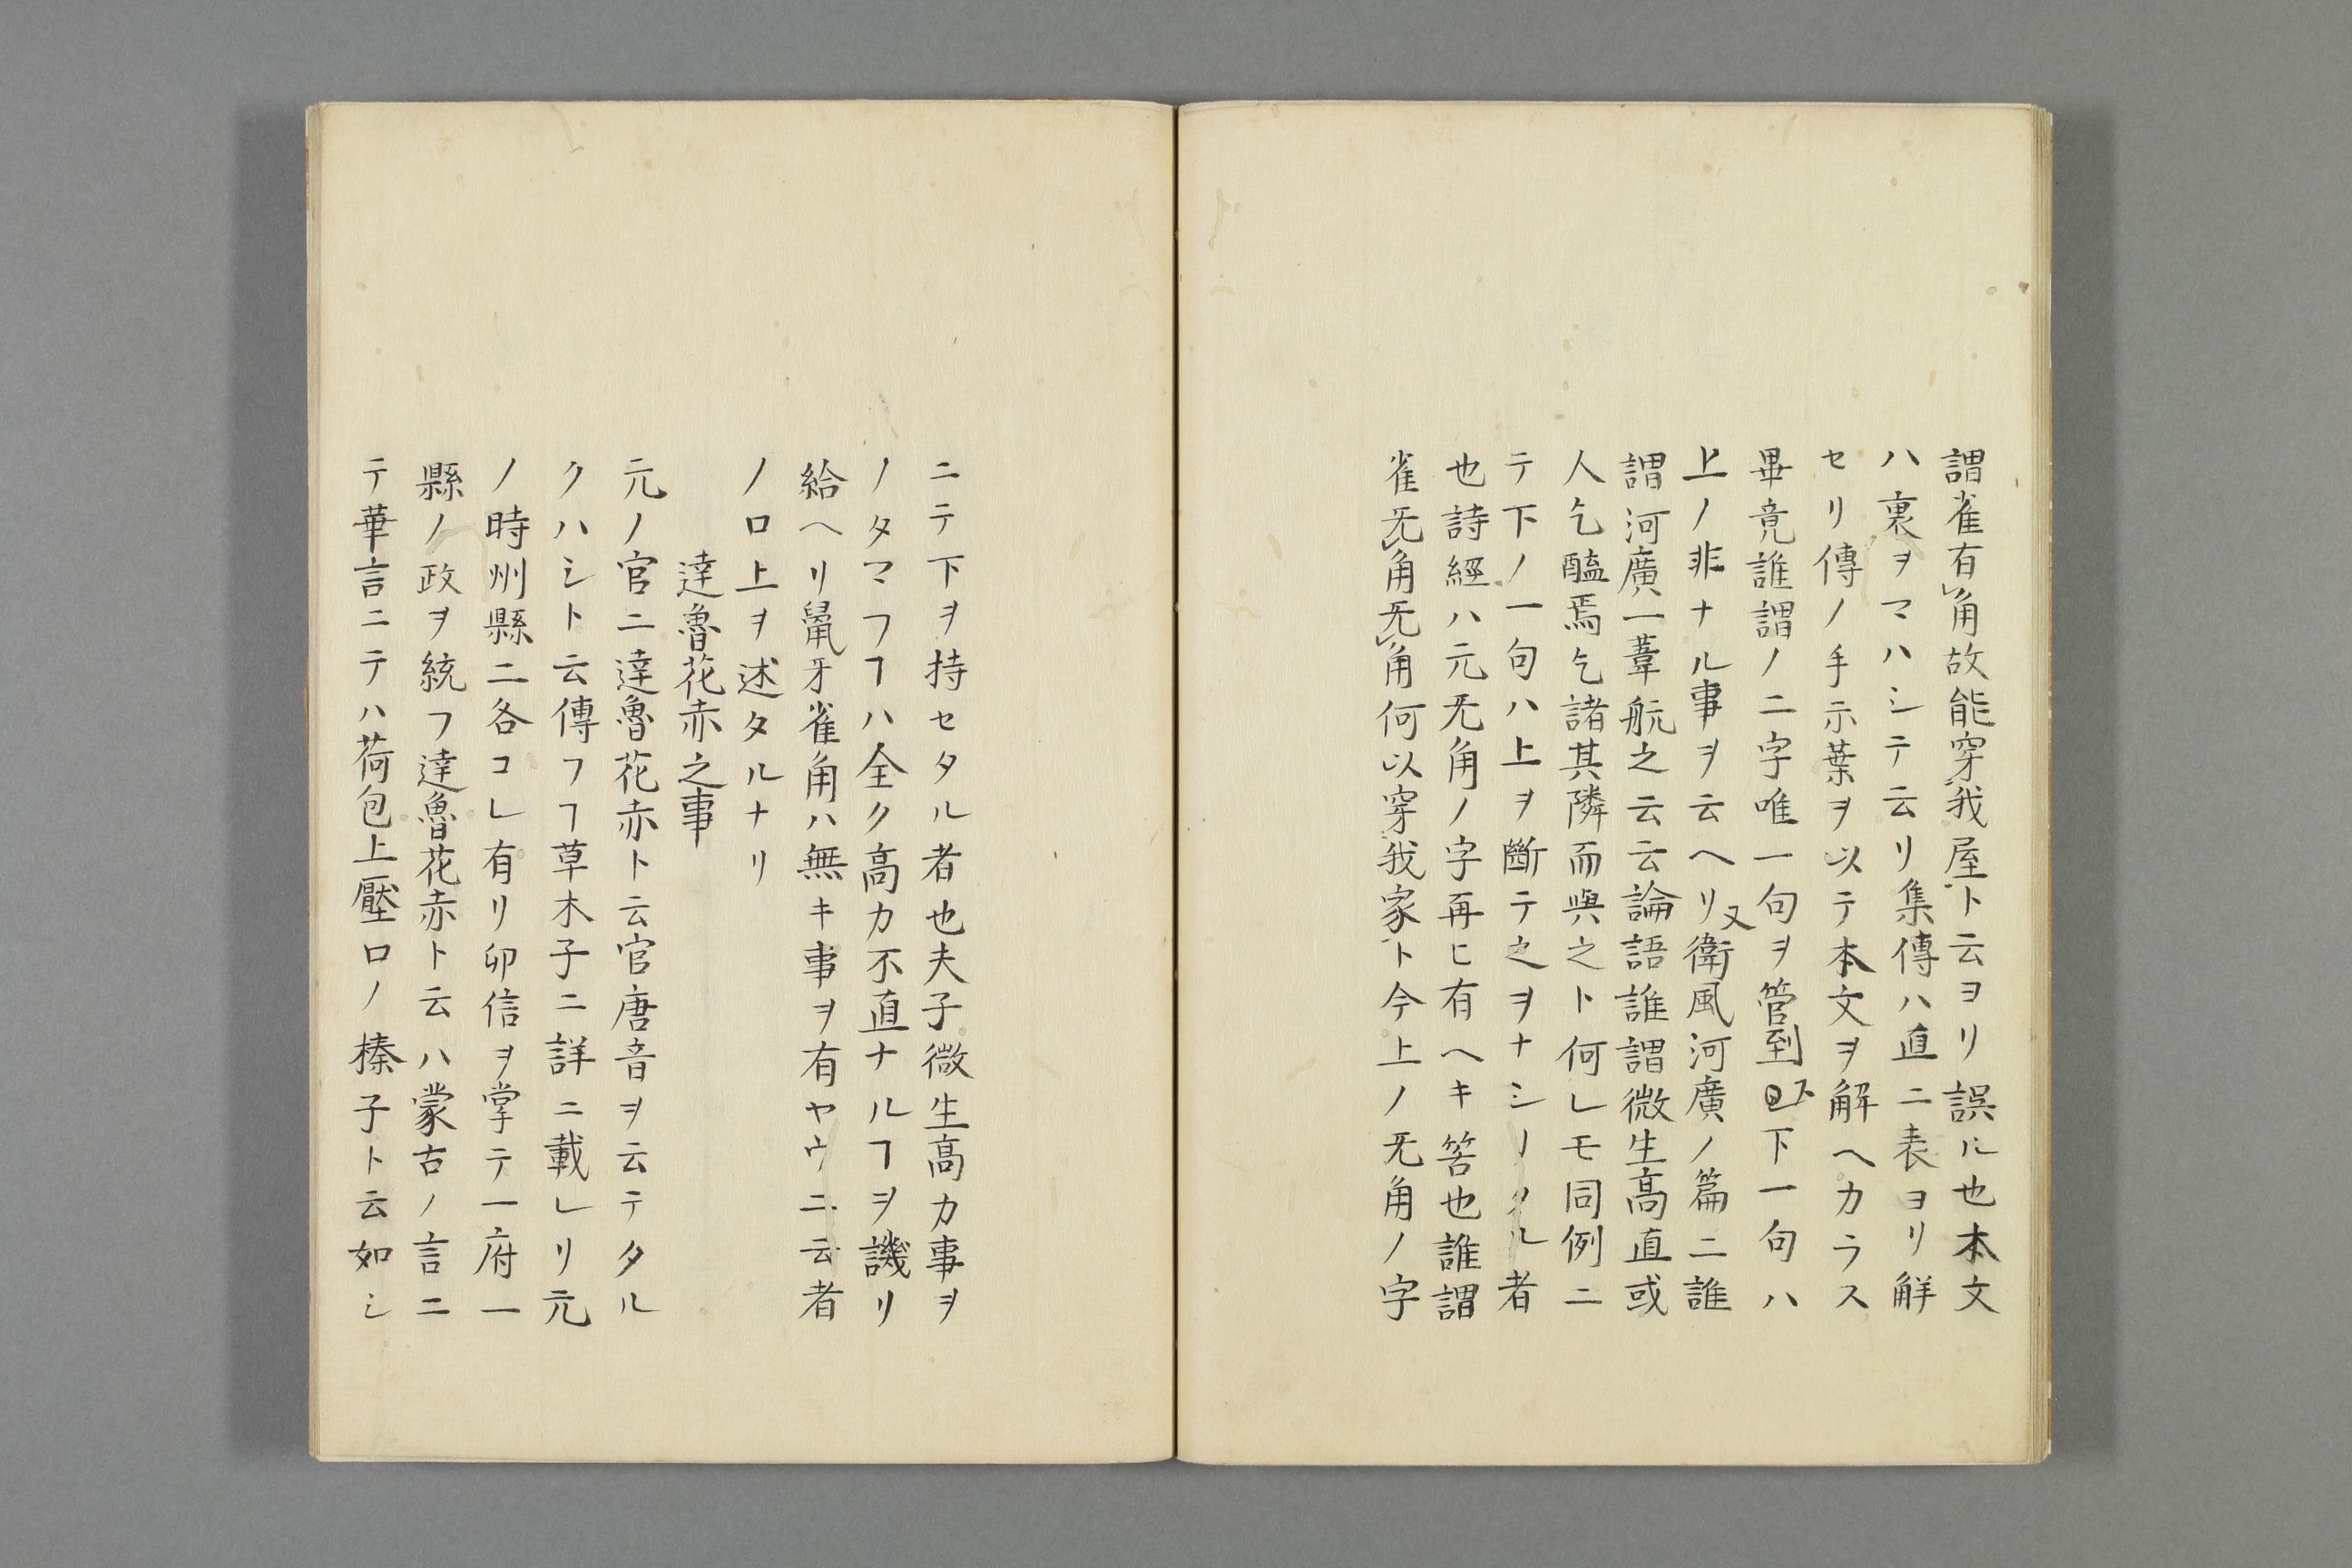 謂雀有角故能穿我屋ト云ヨリ誤ル也本文
ハ裏ヲマハシテ云リ集傳ハ直ニ表ヨリ解
セリ傳ノ手示葉ヲ以テ本文ヲ解ヘカラス
畢竟誰謂ノ二字唯一句ヲ管到 下一句ハ
上ノ非ナル事ヲ云ヘリ又衛風河廣ノ篇ニ誰
謂河廣一葦航之云云論語誰謂微生高直或
人乞醯焉乞諸其隣而與之ト何レモ同例ニ
テ下ノ一句ハ上ヲ斷テ之ヲナシリタル者
也詩經ハ元旡角ノ字再ヒ有ヘキ筈也誰謂
雀旡角旡角何以穿我家ト今上ノ旡角ノ字
ニテ下ヲ持セタル者也夫子微生高カ事ヲ
ノタマフヿハ全ク高カ不直ナルヿヲ譏リ
給ヘリ鼠牙雀角ハ無キ事ヲ有ヤウニ云者
ノ口上ヲ述タルナリ
達魯花赤之事
元ノ官ニ達魯花赤ト云官唐音ヲ云テタル
クハシト云傳フヿ草木子ニ詳ニ載レリ元
ノ時州縣ニ各コレ有リ卯信ヲ掌テ一府一
縣ノ政ヲ統フ達魯花赤ト云ハ蒙古ノ言ニ
テ華言ニテハ荷包上壓口ノ榛子ト云如シ